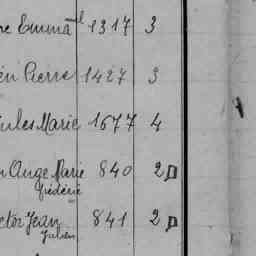 Emma 1317 3
Pierre 1427 3
Jules Marie 1677 4
Ange Marie 840 2 D
Frédéric
Jean 841 2 D
Julien